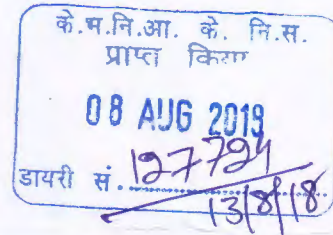 के.भ.नि.आ. के. नि.स.
प्राप्त किया
08 AUG 2019
डायरी सं. 127724
13/8/18